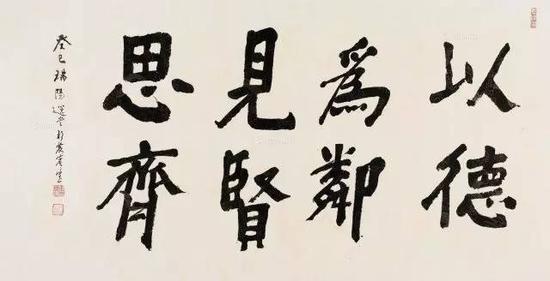 以德
爲鄰
見賢
思齊
癸巳瑞陽